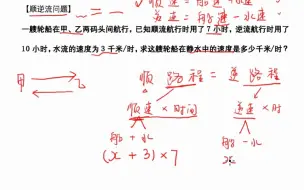 顺速 = 船速 + 水速
【顺逆流问题】
逆速 = 船速 - 水速
一艘轮船在甲、乙两码头间航行,已知顺流航行时用了 7 小时,逆流航行时用了
10 小时,水流的速度为 3 千米/时,求这艘轮船在静水中的速度是多少千米/时?
顺 路程 = 逆 路程
甲 乙
顺速 × 时间 逆速 × 时
船 + 水 船 - 水
(x + 3) × 7